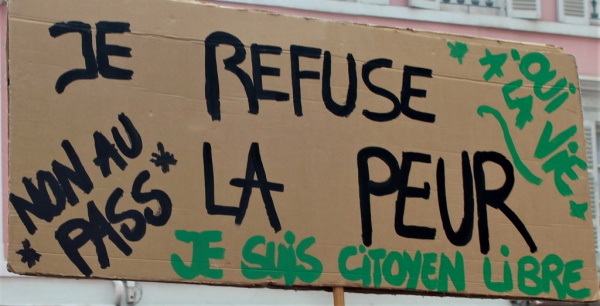 JE REFUSE
LA PEUR
NON AU
PASS
OUI
LA VIE
JE SUIS CITOYEN LIBRE